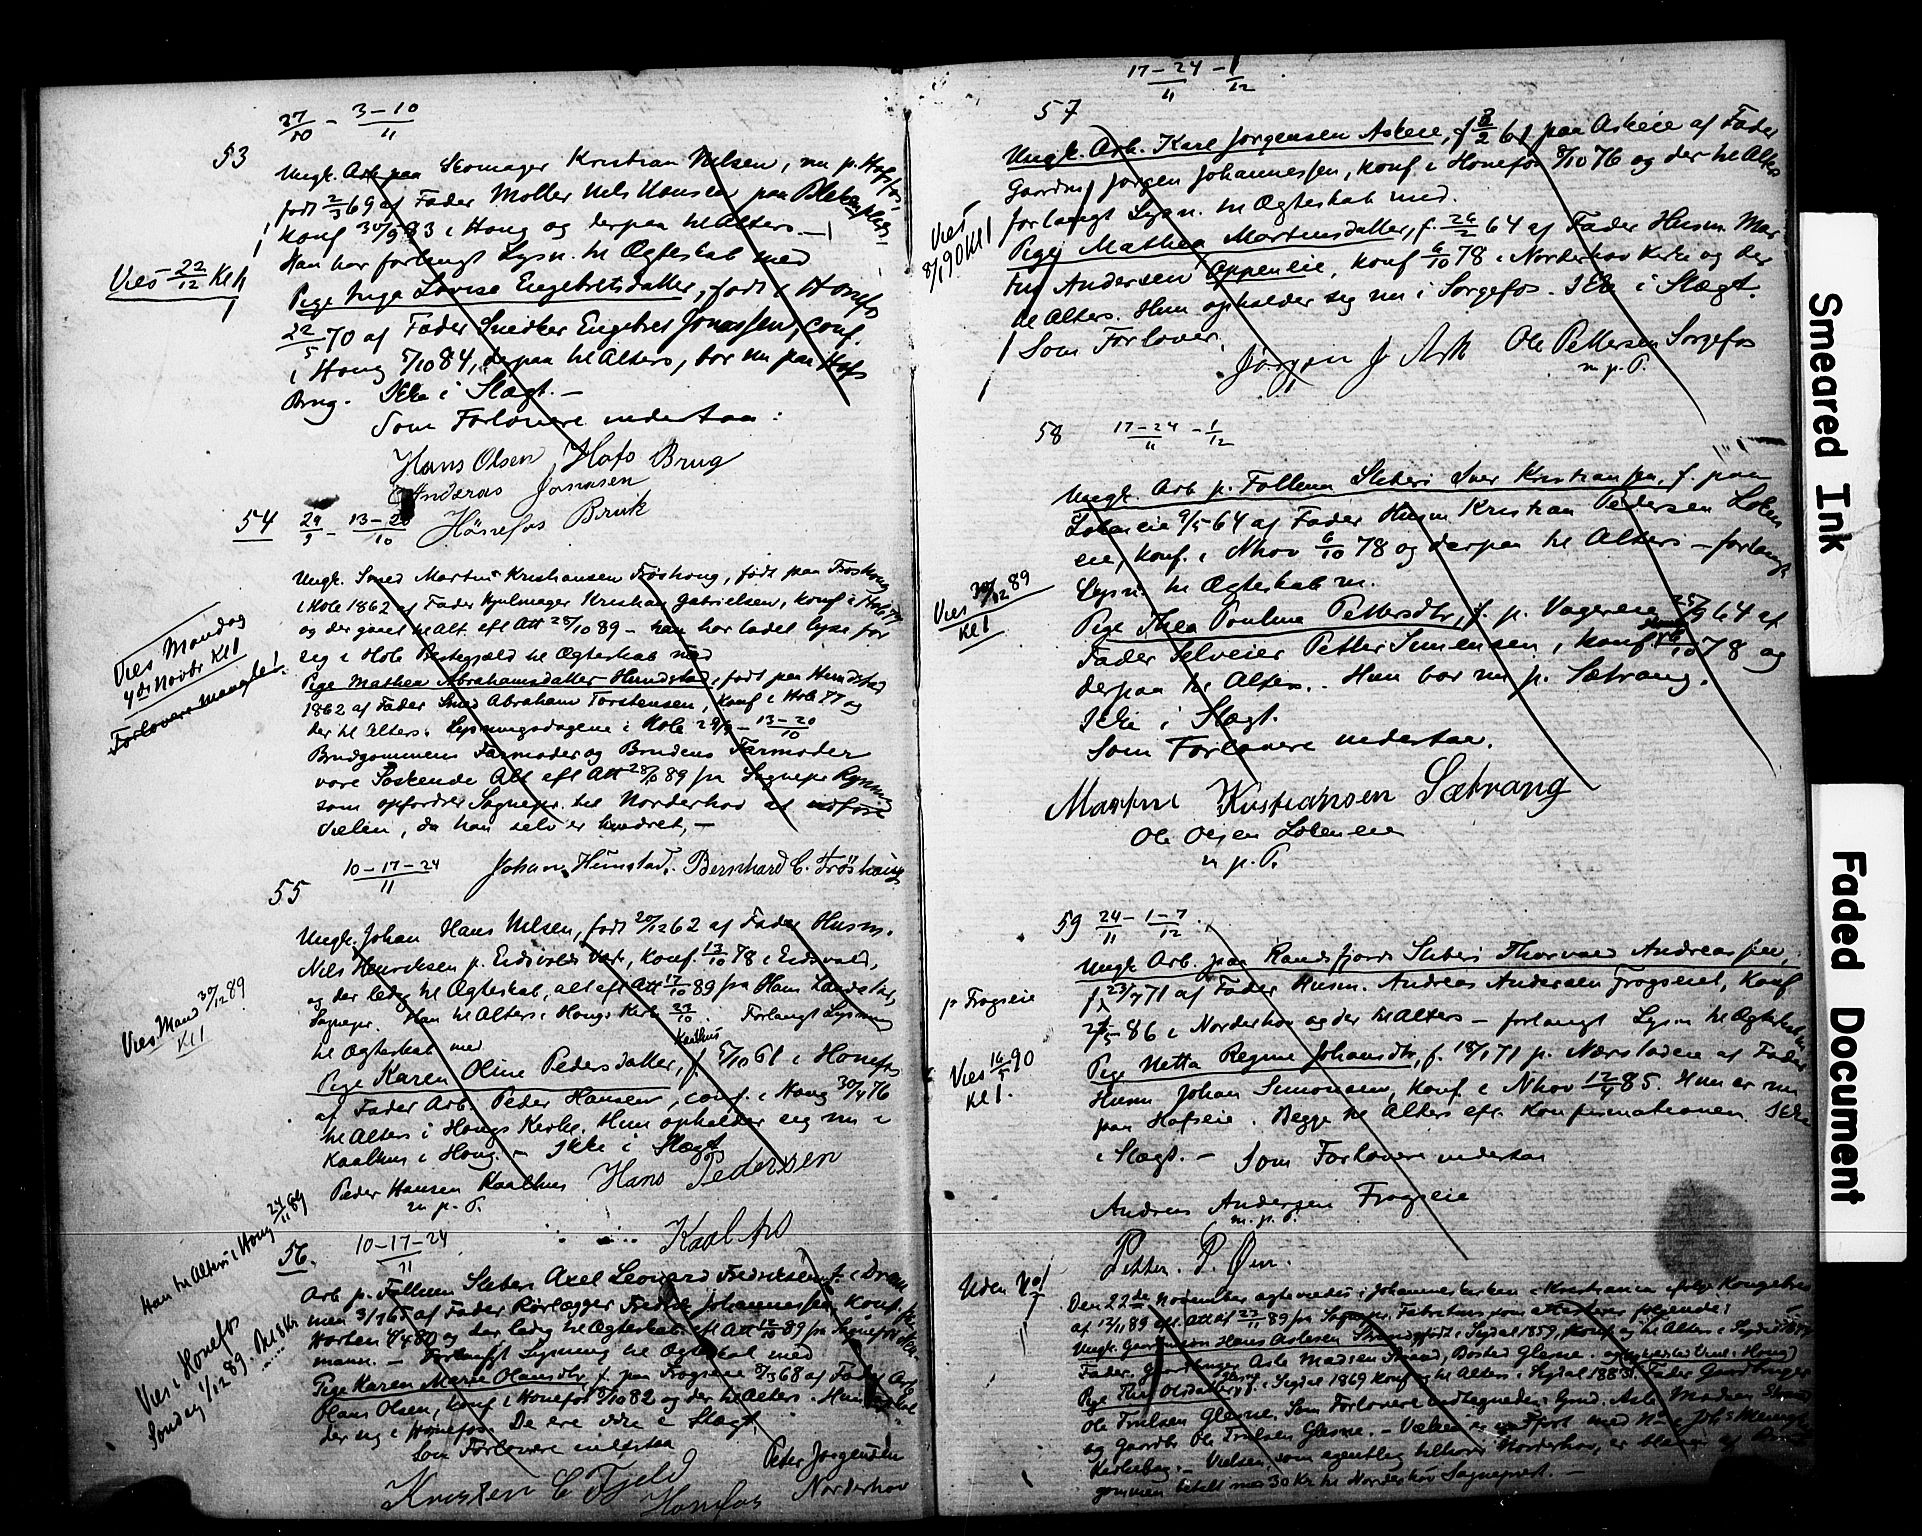 27/10 – 3–10/11
53
Ungk. Arb paa Skomager Kristian Nilsen, nu p. Hofsfos
født 2/3 69 af Fader Møller Nils Hansen paa Bleken
Konf 30/9 83 i Houg og derpaa til Alters. –
Han har forlangt Lysn. til Ægteskab med
Vies 22/12 Kl 4
Pige Inga Lovise Engebretsdatter, født i Honefos
22/5 70 af Fader Snedker Engebret Jonassen, conf.
i Houg 5/10 84, derpaa til Alters, bor nu paa Hofs
Brug. Ikke i Slægt. –
Som Forlovere undertaa:
Hans Olsen Hofs Brug
Andreas Jonasen
Hönefos Bruk
54 29/9 – 13–20/10
Ungk. Smed Martin Kristiansen Frøshoug, født paa Frøshoug
i Hole 1862 af Fader Hjulmager Kristian Gabrielsen, konf i Hole 77
og der gaaet til Alt. efl Att 28/10 89 – han har ladet lyse for
sig i Hole Prestegjæld til Ægteskab med
Vies Mandag
4de Novbr Kl 1
Forlovere mangler!
Pige Mathea Abrahamsdatter Hundstad, født paa Hundstad
1862 af Fader Smed Abraham Torstensen, konf i Hole 77 og
der til Alters. Lysningsdagene i Hole 29/9 – 13–20/10
Brudgommens Farmoder og Brudens Farmoder
vare Søskende Alt efl Att 28/10 89 fra Sognepr
som opfordrer Sognepr. til Norderhov at udføre
Vielsen, da han selv er hindret, –
10–17–24/11
Johan Hunstad. Bernhard C. Fröshaug
55
Ungk. Johan Hans Nilsen, født 20/12 62 af Fader Husm.
Nils Henriksen p. Eidsvolds Værk, konf. 13/10 78 i Eidsvold,
og der ledig til Ægteskab, alt efl Att 17/10 89 fra Hans Landstad,
Sognepr. Han til Alters i Hougs Kirke 27/10. Forlangt Lysning
til Ægteskab med
Vies Mand 30/12 89
Kl 1
Kaalhus
Pige Karen Oline Pedersdatter, f 5/10 61 i Honefos
af Fader Arb. Peder Hansen, conf. i Houg 30/4 76
til Alters i Hougs Kirke. Hun opholder sig nu i
Kaalhus i Houg. – Ikke i Slægt
Peder Hansen Kaalhus Hans Pedersen
m. p. P.
Kaalhus
Han til Alters i Houg 24/11 89
56. 10–17–24/11
Arb p. Follum Sliberi Axel Leonard Fredriksen f. i Dram
men 3/1 65 af Fader Rørlægger Fredrik Johannessen, Konf.
Horten 4/4 80 og der ledig til Ægteskab efl Att 12/10 89 fra Sognepr
mann. – Forlangt Lysning til Ægteskab med
Vies i Honefos
Sondag 1/12 89.
Pige Karen Marie Olausdtr, f. paa Frogseie 8/3 68 af Fader Arb
Hans Olsen, konf i Honefos 8/10 82 og der til Alters. Hun
der sig i Honefos. De ere ikke i Slægt.
Som Forlovere undertaa
Peter Jørgensen
Norderhov
Kristen C Fjeld
Honefos
17–24/11 – 1/12
57
Ungk. Arb. Karl Jorgensen Askeie, f 3/2 61 paa Askeie af Fader
Gaardm Jorgen Johannessen, konf i Honefos 8/10 76 og der til Alters
forlangt Lysn. til Ægteskab med.
Vies
8/1 90 Kl 1
Pige Mathea Martensdatter, f. 26/2 64 af Fader Husm. Mar
tin Andersen Oppeneie, konf 6/10 78 i Norderhov Kirke og der
til Alters. Hun opholder sig nu i Sorgefos. Ikke i Slægt.
Som Forlover.
Jørgen J Ask Ole Pettersen Sorgefos
m. p. P.
58 17–24/11 – 1/12
Ungk. Arb p. Follum Sliberi Iver Kristiansen, f. paa
Loken eie 9/5 64 af Fader Husm Kristian Pedersen Loken
eie, konf. i Nhov 6/10 78 og derpaa til Alters – forlangt
Lysn. til Ægteskab m.
Vies 30/12 89
Kl 1
Pige Thea Pauline Pettersdtr, f. p. Vagereie 25/9 64 af
Fader Selveier Petter Simensen, konf. 6/10 78 og
derpaa til Alters. Hun bor nu p. Sætrang.
Ikke i Slægt.
Som Forlovere undertaa.
Martin Kristiansen Sætrang
Ole Olsen Lokeneie
m p. P.
59 24/11 – 1–7/12.
Ungk Arb. paa Randsfjord Sliberi Thorvald Andreassen,
p Frogseie
f. 23/7 71 af Fader Husm. Andreas Andersen Frogseiet, konf
86 i Norderhov og der til Alters – forlangt Lysn til Ægteskab
Vies 16/5 90
Kl 1.
Pige Netta Regine Johansdtr, f. 18/1 71 p. Nærstadeie af Fader
Husm Johan Simonsen, konf. i Nhov 12/4 85. Hun er nu
paa Hofseie. Begge til Alters efl. Konfirmationen. Ikke
i Slægt. – Som Forlovere undertaa
Andreas Andersen Frogseie
m. p. P.
Petter. P. Øen.
Uden No!
Den 22de November agtviedes i Johanneskirken i Kristiania ifølge Kongebrev
af 13/11 89 efl. Att af 22/11 89 fra Sognepr. Fabritius som attesterer følgende:
Ungk. Gaardmandssøn Hans Aslesen Strand, født i Sigdal 1859, konf og til Alters i Sigdal
Fader. Gaardbruger Asle Madsen Strand, Bosted Glesne.
Pige Olsdatter, f. i Sigdal 1869 konf og til Alters i Sigdal 1883. Fader Gaardbruger
Ole Truelsen Glesne. Som Forlovere undtegnede: Gmd. Asle Madsen Strand
og Gaardbr Ole Truelsen Glesne. – Vielsen er indført med No i Joh's Menigh.
Kirkebog. – Vielsen, som egentlig tilhører Norderhov, er
gommen betalt med 30 Kr. til Norderhov Sognepræst. –
Smeared Ink
Faded Document